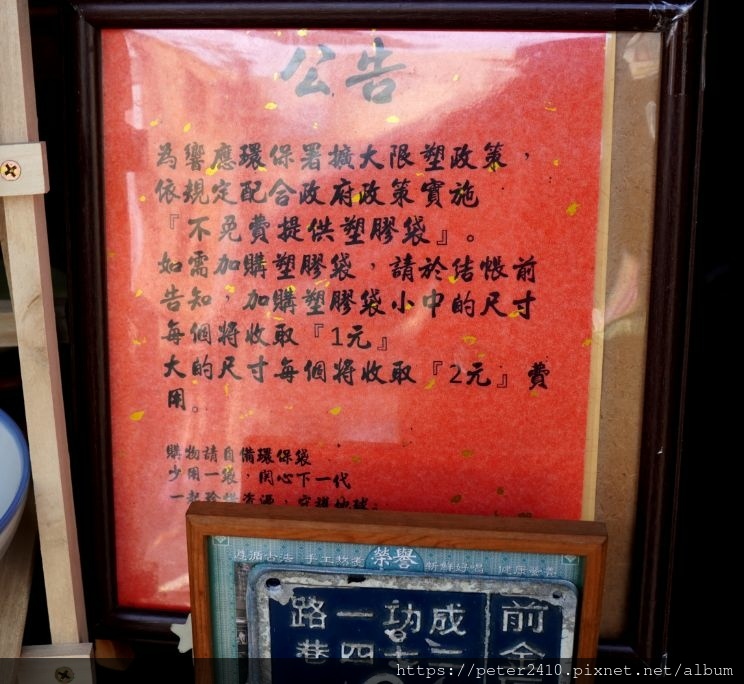 公告
為響應環保署擴大限塑政策，
依規定配合政府政策實施
『不免費提供塑膠袋』。
如需加購塑膠袋，請於結帳前
告知，加購塑膠袋小中的尺寸
每個將收取『1元』
大的尺寸每個將收取『2元』費
用。
購物請自備環保袋
少用一袋，關心下一代
一起珍惜資源，守護地球。
遵循古法 手工 榮譽 新鮮好喝 健康
前金
成功一路
四 巷
https://peter2410.pixnet.net/album